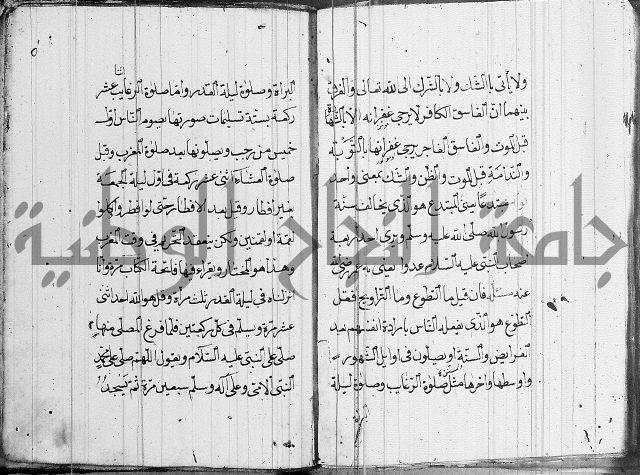 ولا يأتى بالشك ولا بالشرك الى الله تعالى والفرق
بينهما ان الفاسق الكافر لا يرجى غفرانه الا بالشهادة
قبل الموت والفاسق الفاجر يرجى غفرانها بالتوبة
والندامة قبل الموت والظن والشك بمعنى واحد
مبتدعا سنى المبتدع هو الذى يخالف سنة
رسول الله صلى الله عليه وسلم ويرى احدا من
اصحاب النبى عليه السلام عدوا يعنى به عمر رضى الله
عنه مسئلة فان قيل ما التطوع وما التراويح فقل
التطوع هو الذى يفعله الناس بارادة انفسهم بعد
الفرائض والسنة ويصلون فى اوايل الشهور
واوسطها واخرها مثل صلوة الرغايب وصلوة ليلة
البراة وصلوة ليلة القدر واما صلوة الرغايب اثنا عشر
ركعة بستة تسليمات صورتها يصوم الناس اول
خميس من رجب ويصلونها بعد صلوة المغرب وقبل
صلوة العشاء اثنى عشر ركعة فى اول ليلة الجمعة
غير افطار وقيل بعد الافطار حتى لو افطر واكلوا
لقمة او لقمتين ولكن ينعقد التحريم فى وقت المغرب
وهذا هو المختار ويقراء فيها فاتحة الكتاب مرة وانا
انزلناه فى ليلة القدر ثلث مرة وقل هو الله احد اثنى
عشر مرة ويسلم فى كل ركعتين فلما فرغ المصلى منها
صلى على النبى عليه السلام ويقول اللهم صلى على محمد
النبى الامى وعلى آله وسلم سبعين مرة ثم يسجد
جامعة النجاح الوطنية